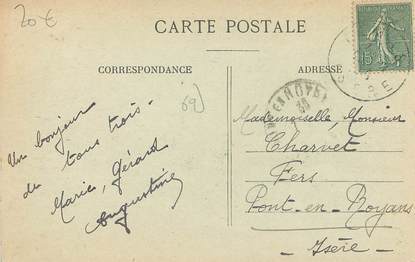 20 €
CARTE POSTALE
CORRESPONDANCE
ADRESSE
69
Un bonjour
de tous trois.
Marie, Gérard
Augustine
Mademoiselle, Monsieur
Charvet
Fers
Pont-en-Royans
- Isère -
15